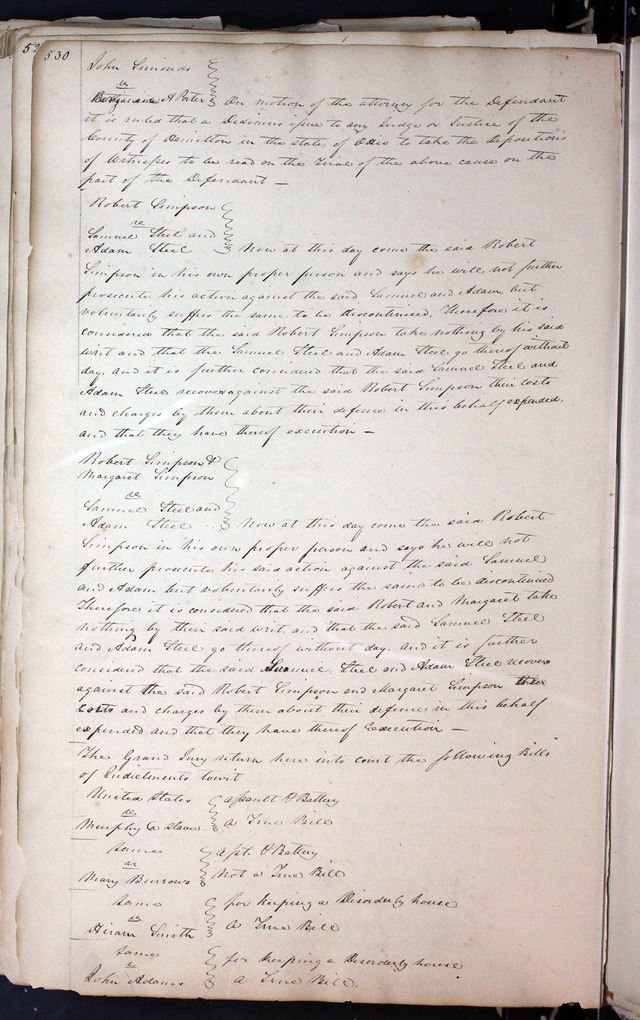 530
John Simonds
vs
A Porter On motion of the attorney for the Defendant
it is ruled that a Dedimus issue to any Judge or Justice of the
County of Hamilton in the state of Ohio to take the Depositions
of Witnesses to be read on the Trial of the above cause on the
part of the Defendant —
Robert Simpson
vs
Samuel Steel and
Adam Steel Now at this day come the said Robert
Simpson in his own proper person and says he will not further
prosecute his action against the said Samuel and Adam but
voluntarily suffers the same to be discontinued, Therefore it is
considered that the said Robert Simpson take nothing by his said
writ and that the Samuel Steel and Adam Steel go thereof without
day. and it is further considered that the said Samuel Steel and
Adam Steel recover against the said Robert Simpson their costs
and charges by them about their defence in this behalf expended.
and that they have thereof execution —
Robert Simpson &
Margaret Simpson
vs
Samuel Steel and
Adam Steel Now at this day come the said Robert
Simpson in his own proper person and says he will not
further prosecute his said action against the said Samuel
and Adam but voluntarily suffers the same to be discontinued
Therefore it is considered that the said Robert and Margaret take
nothing by their said writ, and that the said Samuel Steel
and Adam Steel go thereof without day. and it is further
considered that the said Samuel Steel and Adam Steel recover
against the said Robert Simpson and Margaret Simpson their
costs and charges by them about their defence in this behalf
expended and that they have thereof Execution —
The Grand Jury return here into court the following Bills
of Indictments towit
United States assault & Battery
vs
Murphy a slave A True Bill
same asst. & Battery
vs
Mary Burrows Not a True Bill
same for keeping a Disorderly house
vs
Hiram Smith A True Bill
same for keeping a Disorderly house
vs
John Adams a True Bill.